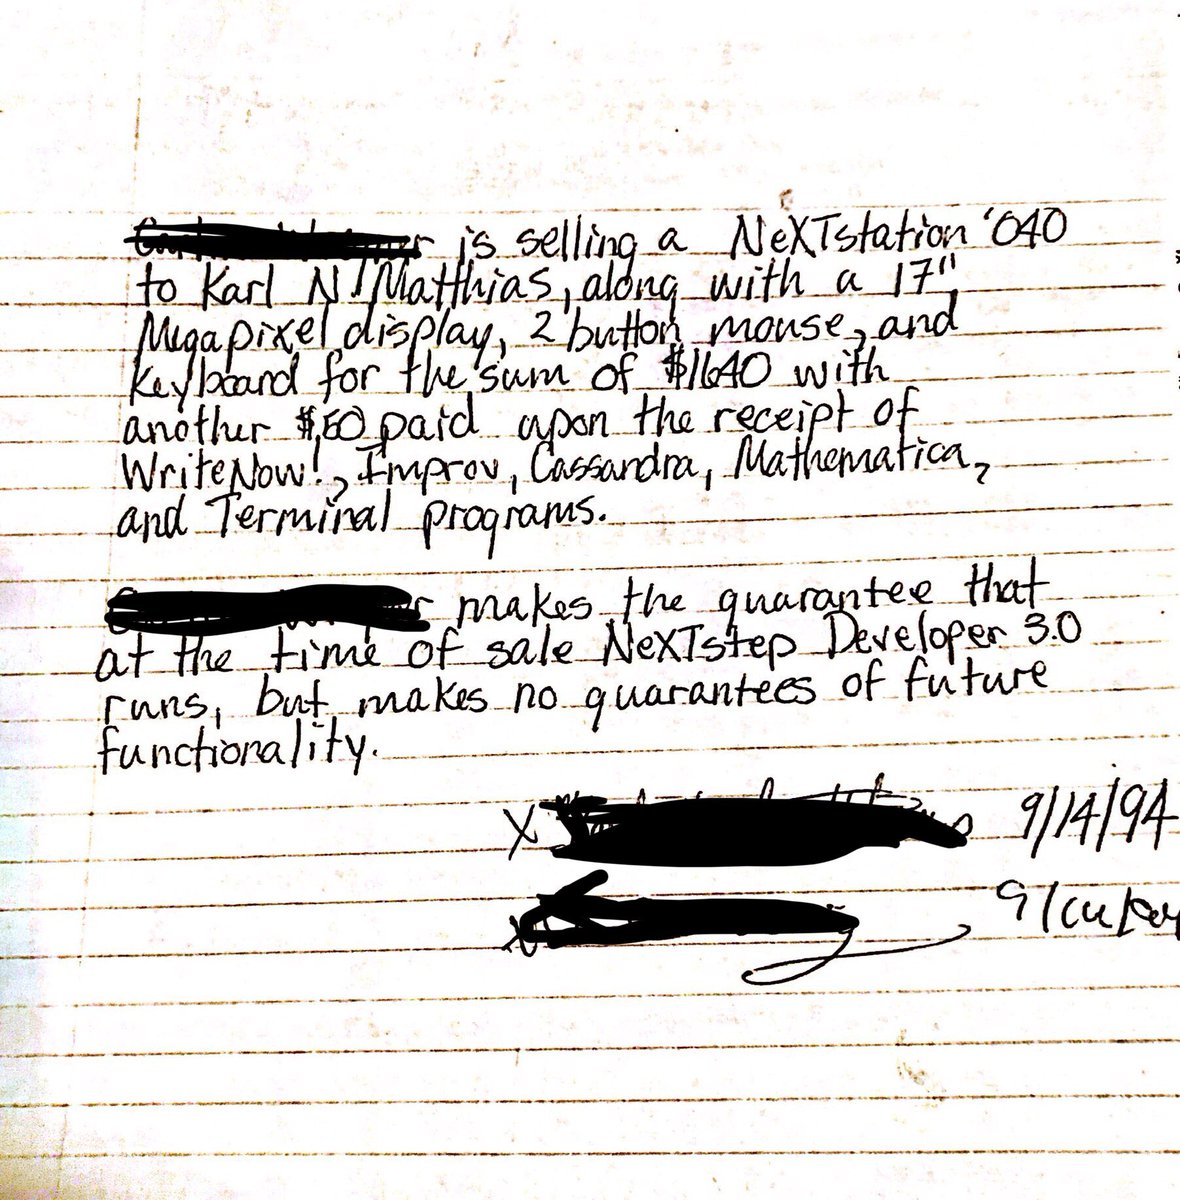 is selling a NeXTstation '040
to Karl N Matthias, along with a 17"
Megapixel display, 2 button mouse, and
keyboard for the sum of $1640 with
another $50 paid upon the receipt of
WriteNow!, Improv, Cassandra, Mathematica,
and Terminal programs.
makes the guarantee that
at the time of sale NeXTstep Developer 3.0
runs, but makes no guarantees of future
functionality.
X 9/14/94
X